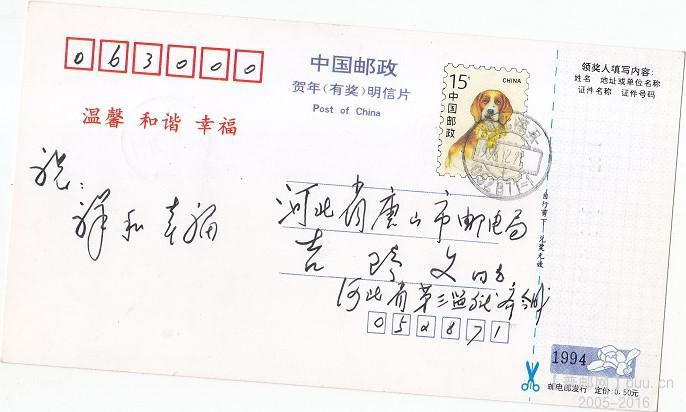 063000
中国邮政
贺年(有奖)明信片
Post of China
温馨 和谐 幸福
15分
CHINA
中国邮政
领奖人填写内容:
姓名 地址或单位名称
证件名称 证件号码
祝:
祥和幸福
河北省唐山市邮电局
吉 玲 文 同志
河北省第三监狱
052871
自行剪下 兑奖无效
1994
邮电部发行 定价:0.50元
2005-2016